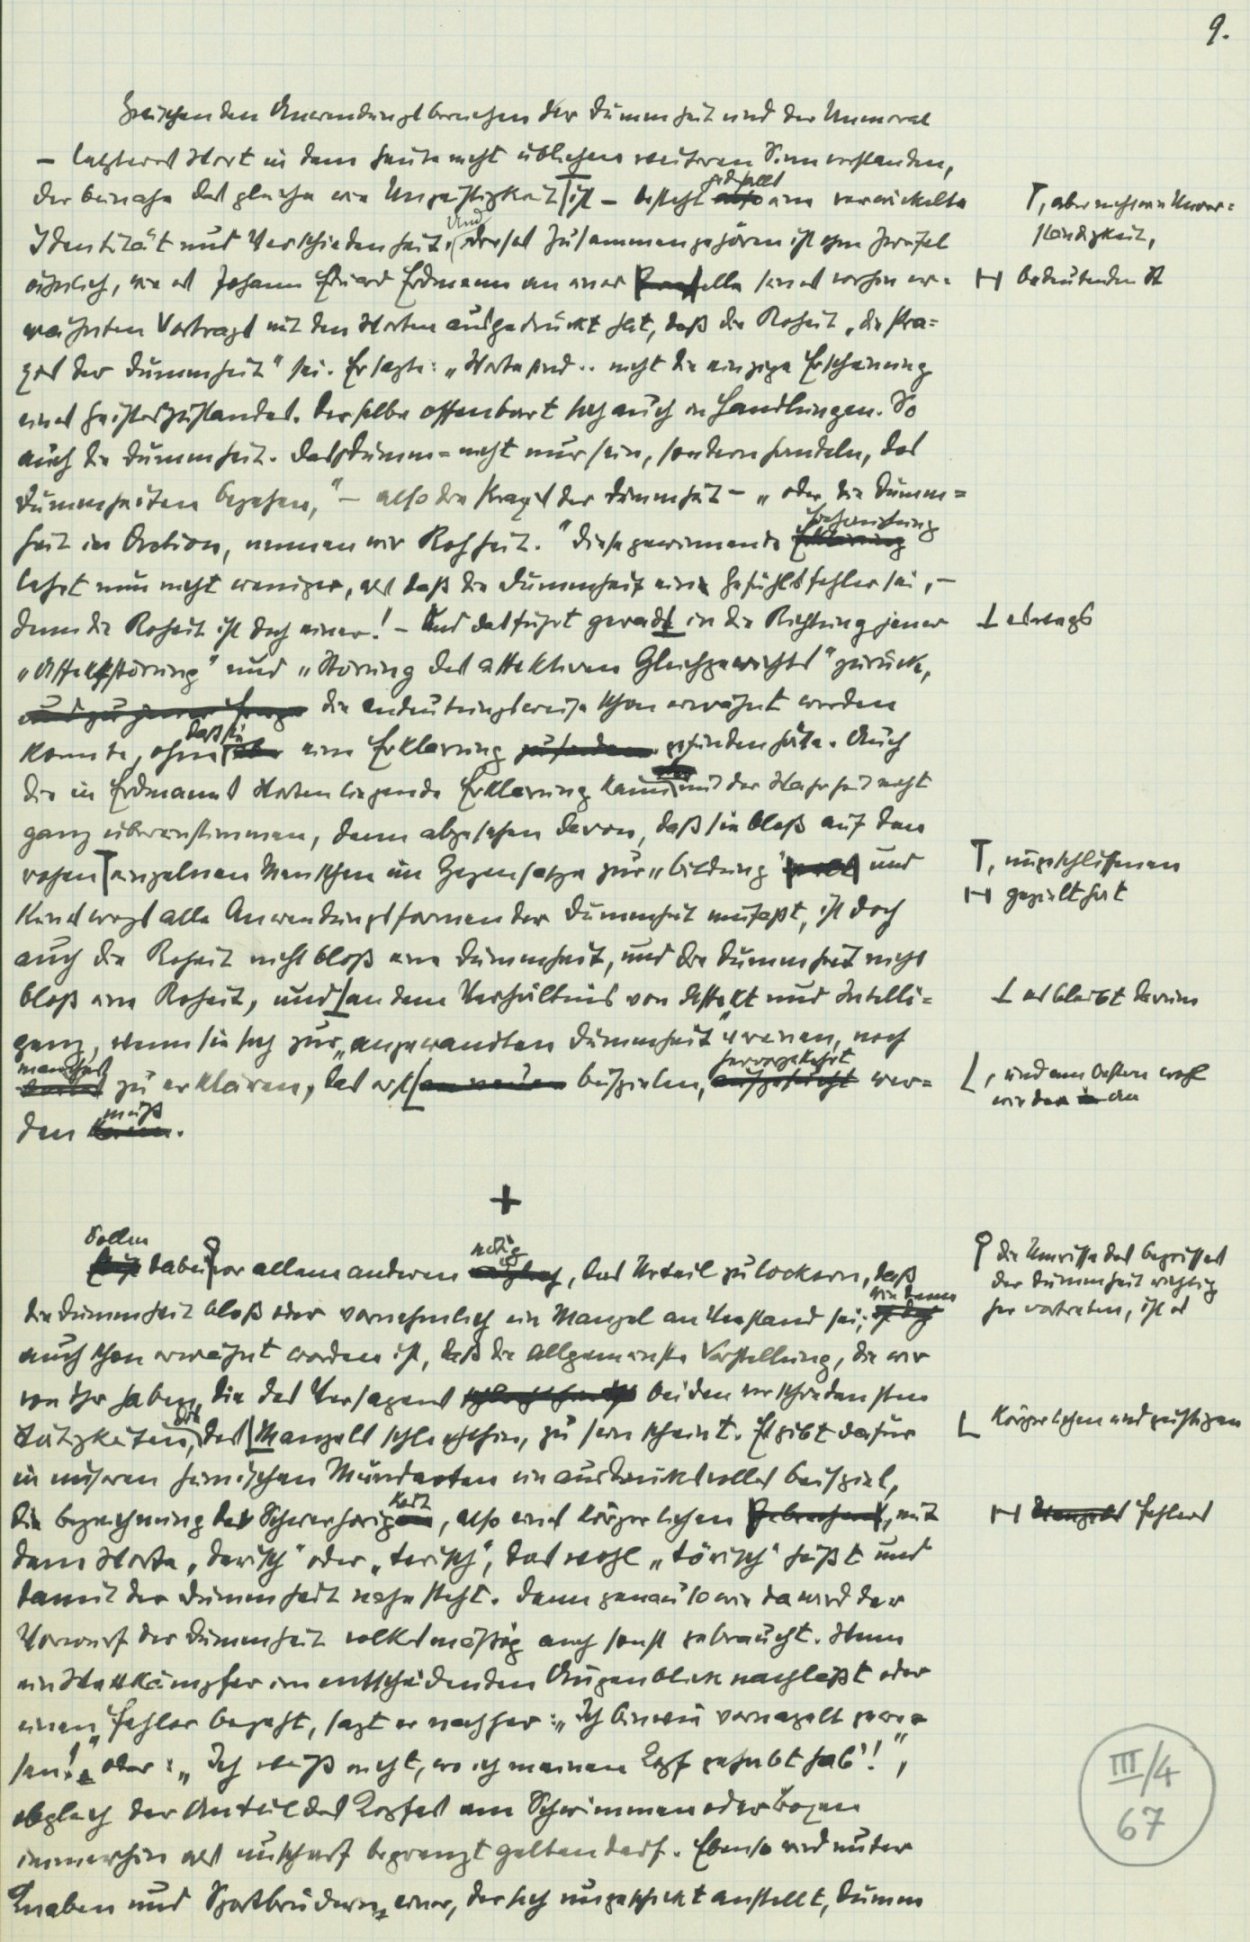 9.
Zwischen den Anwendungsbereichen der Dummheit und der Unmoral
— letzteres Wort in dem heute nicht üblichen weiteren Sinn verstanden,
der beinahe das gleiche wie Ungeistigkeit ist — besteht jedenfalls eine verwickelte
T, aber nicht wie Unver=
ständigkeit,
Identität und Verschiedenheit. Und dieses Zusammengehören ist ohne Zweifel
ähnlich, wie es Johann Eduard Erdmann an einer stelle seines vorhin er=
H bedeutenden
wähnten Vortrags mit den Worten ausgedrückt hat, daß die Roheit „die Pra=
xis der Dummheit" sei. Er sagte: „Worte sind .. nicht die einzige Erscheinung
eines Geisteszustandes. Derselbe offenbart sich auch in Handlungen. So
auch die Dummheit. Das Dumm= nicht nur sein, sondern handeln, das
Dummheiten begehen," — also die Praxis der Dummheit — „oder die Dumm=
heit in Aktion, nennen wir Rohheit." Diese gewinnende Behauptung
lehrt nun nicht weniger, als daß die Dummheit ein Gefühlsfehler sei, —
denn die Roheit ist doch einer! — Und das führt gerades in die Richtung jener
⊥ wegs
„Affektstörung" und „Störung des affektiven Gleichgewichts" zurück,
die andeutungsweise schon erwähnt werden
konnte, ohne daß sie eine Erklärung gefunden hätte. Auch
die in Erdmanns Worten liegende Erklärung kann mit der Wahrheit nicht
ganz übereinstimmen, denn abgesehen davon, daß sie bloß auf den
rohen einzelnen Menschen im Gegensatze zur „Bildung" und
T, ungeschliffenen
H gezielt hat
keineswegs alle Anwendungsformen der Dummheit umfaßt, ist doch
auch die Roheit nicht bloß eine Dummheit, und die Dummheit nicht
bloß eine Roheit, und an dem Verhältnis von Affekt und Intelli=
⊥ es bleibt darum
genz, wenn sie sich zur „angewandten Dummheit" vereinen, noch
manches zu erklären, das erst beispielen, hervorgekehrt wer=
L, und am besten wohl
wieder an
den muß.
+
Sollen dabei vor allem anderen nötig, das Urteil zu lockern, daß
die Umrisse des Begriffes
der Dummheit richtig
hervortreten, ist es
die Dummheit bloß oder vornehmlich ein Mangel an Verstand sei; wie denn
auch schon erwähnt worden ist, daß die allgemeinste Vorstellung, die wir
von ihr haben, die des Versagens bei den verschiedensten
Tätigkeiten, die des Mangels schlechthin, zu sein scheint. Es gibt dafür
L körperlichen und geistigen
in unseren heimischen Mundarten ein ausdrucksvolles Beispiel,
die Bezeichnung der Schwerhörigkeit, also eines körperlichen Gebrechens, mit
H Mangels Fehlers
dem Worte „derisch" oder „terisch", das wohl „törisch" heißt und
damit der Dummheit nahe steht. Denn genau so wie da wird der
Vorwurf der Dummheit volksmäßig auch sonst gebraucht. Wenn
ein Wettkämpfer im entscheidenden Augenblick nachläßt oder
einen Fehler begeht, sagt er nachher: „Ich bin wie vernagelt gewe=
sen!" oder: „Ich weiß nicht, wo ich meinen Kopf gehabt hab'!",
obgleich der Anteil des Kopfes am Schwimmen oder Boxen
immerhin als unscharf begrenzt gelten darf. Ebenso wird unter
Knaben und Sportbrüdern einer, der sich ungeschickt anstellt, dumm
III/4
67